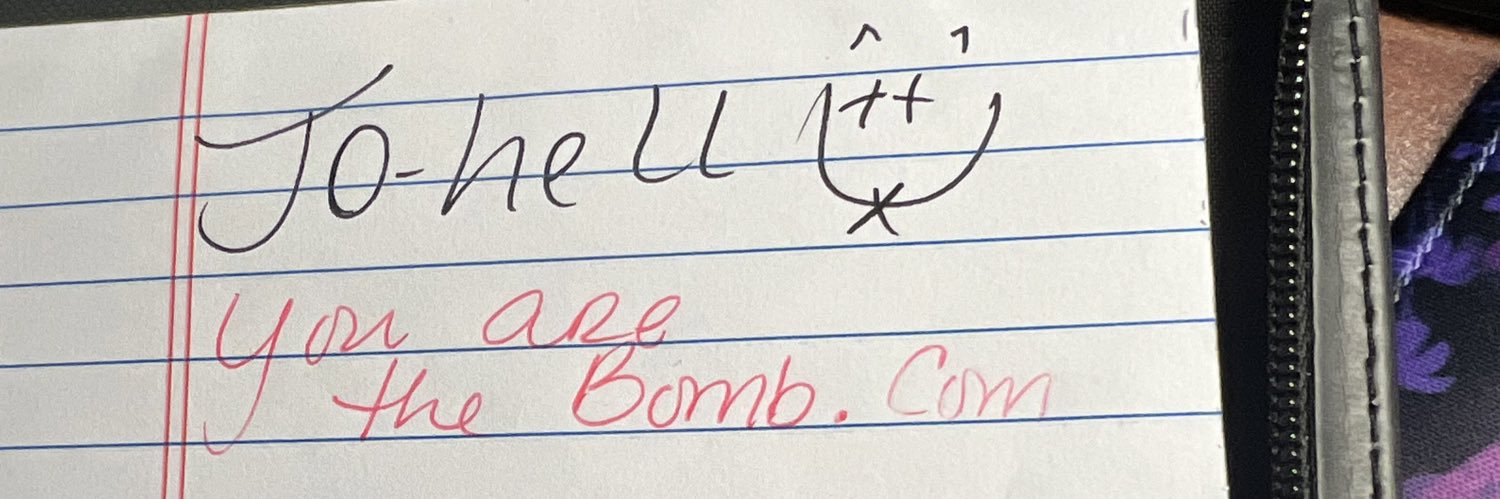 Jo-hell
you are
the Bomb. Com